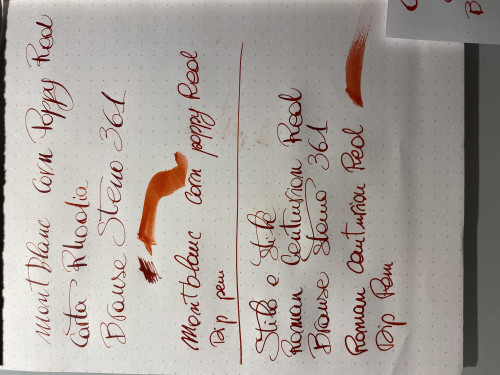 Montblanc Corn Poppy Red
Carta Rhodia
Brause Steno 361
Montblanc corn poppy Red
Dip pen
Stilo e Stile
Roman Centurion Red
Brause Steno 361
Roman Centurion Red
Dip Pen